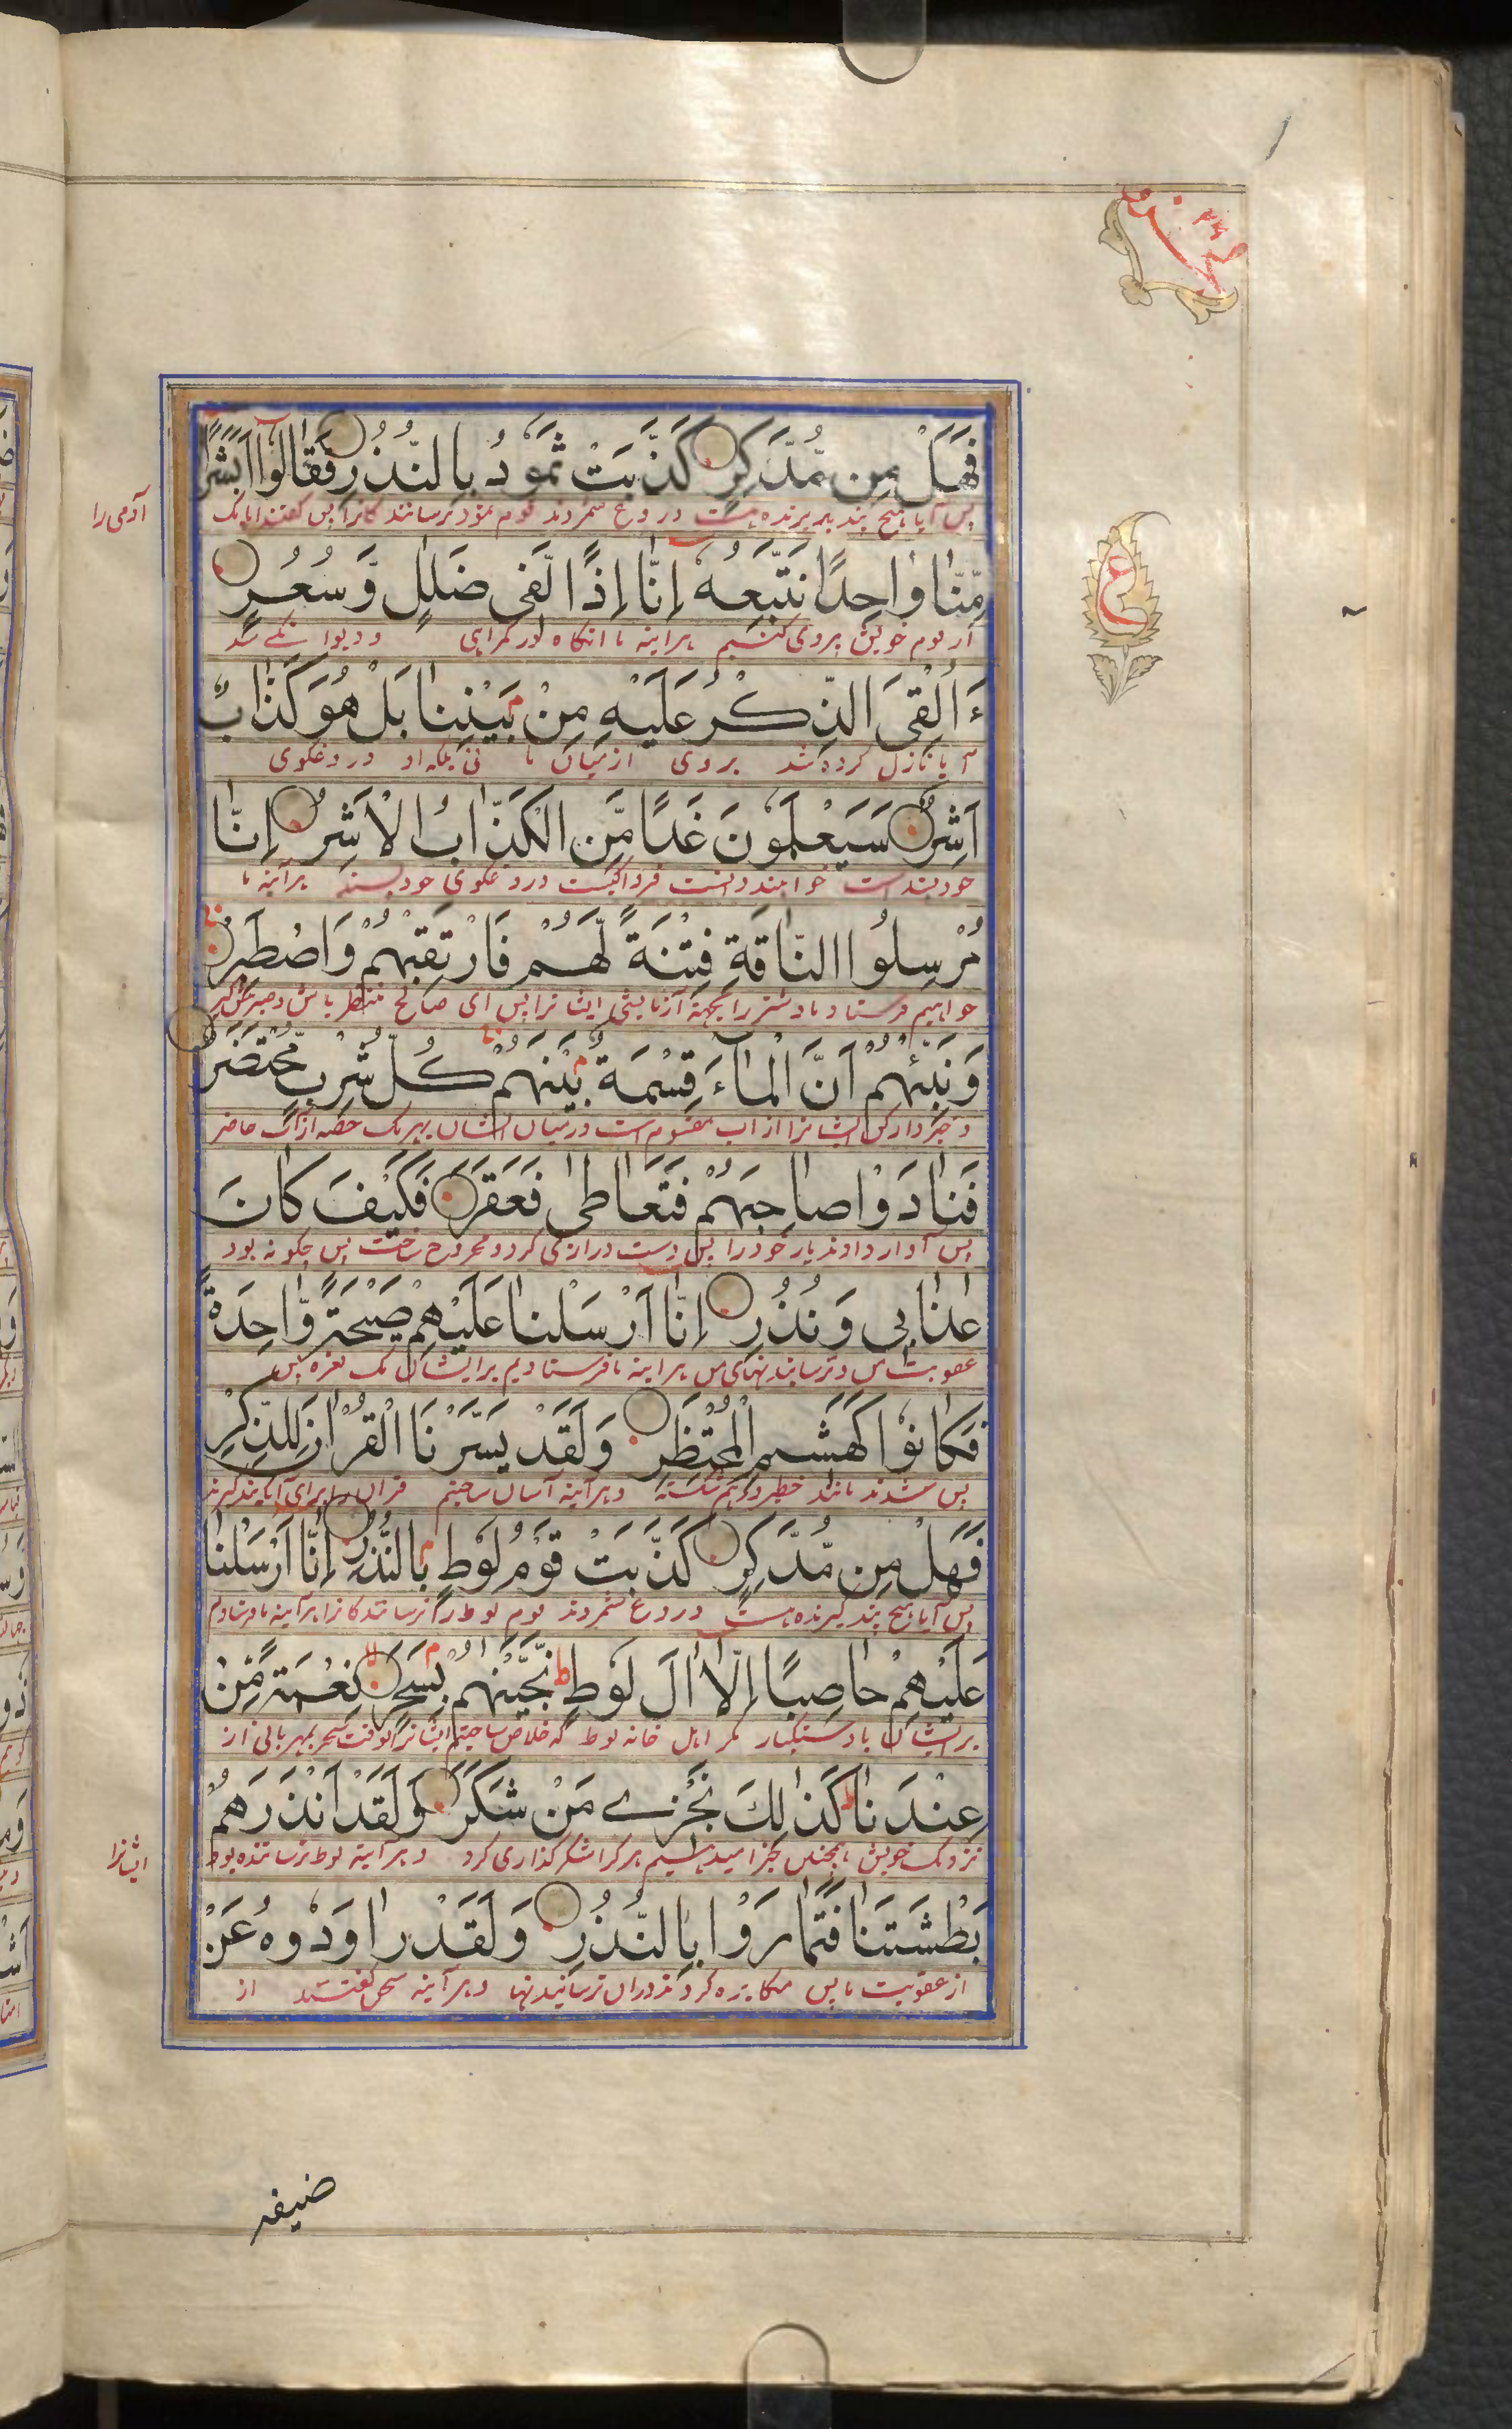 فَهَلْ مِن مُّدَّكِرٍ كَذَّبَتْ ثَمُودُ بِالنُّذُرِ فَقَالُوا أَبَشَرًا
پس آیا هیچ پند پذیرنده هست دروغ شمردند قوم ثمود ترسانندگانرا پس گفتند آیا یک
آدمی را
مِّنَّا وَاحِدًا نَّتَّبِعُهُ إِنَّا إِذًا لَّفِي ضَلَٰلٍ وَّسُعُرٍ
از قوم خویش پیروی کنیم هرآینه ما آنگاه در گمراهی و دیوانگی
ءَأُلْقِيَ الذِّكْرُ عَلَيْهِ مِنْ بَيْنِنَا بَلْ هُوَ كَذَّابٌ
آیا نازل کرده شد بر وی از میان ما نی بلکه او دروغگوی
أَشِرٌ سَيَعْلَمُونَ غَدًا مَّنِ الْكَذَّابُ الْأَشِرُ إِنَّا
خودپسندست خواهند دانست فردا کیست دروغگوی خودپسند هرآینه ما
مُرْسِلُوا النَّاقَةِ فِتْنَةً لَّهُمْ فَارْتَقِبْهُمْ وَاصْطَبِرْ
خواهیم فرستاد ماده شتر را بجهة آزمایش ایشانرا پس ای صالح منتظر باش و صبر کن
وَنَبِّئْهُمْ أَنَّ الْمَاءَ قِسْمَةٌ بَيْنَهُمْ كُلُّ شِرْبٍ مُّحْتَضَرٌ
و خبردار کن ایشانرا از آب مقسوم است در میان ایشان هر یک حصه از آب حاضر
فَنَادَوْا صَاحِبَهُمْ فَتَعَاطَىٰ فَعَقَرَ فَكَيْفَ كَانَ
پس آواز دادند یار خود را پس دست درازی کرد و مجروح ساخت پس چگونه بود
عَذَابِي وَنُذُرِ إِنَّا أَرْسَلْنَا عَلَيْهِمْ صَيْحَةً وَّاحِدَةً
عقوبت من و ترسانیدنهای من هرآینه ما فرستادیم بر ایشان یک نعره پس
فَكَانُوا كَهَشِيمِ الْمُحْتَظِرِ وَلَقَدْ يَسَّرْنَا الْقُرْآنَ لِلذِّكْرِ
پس شدند مانند درهم شکسته و هرآینه آسان ساختیم قرآن را برای آنکه پند گیرند
فَهَلْ مِن مُّدَّكِرٍ كَذَّبَتْ قَوْمُ لُوطٍ بِالنُّذُرِ إِنَّا أَرْسَلْنَا
پس آیا هیچ پند گیرنده هست دروغ شمردند قوم لوط ترسانندگانرا هرآینه ما فرستادیم
عَلَيْهِمْ حَاصِبًا إِلَّا آلَ لُوطٍ نَّجَّيْنَٰهُم بِسَحَرٍ نِعْمَةً مِّنْ
بر ایشان باد سنگبار مگر اهل خانه لوط که خلاص ساختیم ایشانرا بوقت سحر بمهربانی از
عِنْدِنَا كَذَٰلِكَ نَجْزِي مَنْ شَكَرَ وَلَقَدْ أَنْذَرَهُمْ
نزدیک خویش همچنین جزا میدهیم هر کرا شکرگذاری کرد و هرآینه لوط ترسانیده بود
ایشانرا
بَطْشَتَنَا فَتَمَارَوْا بِالنُّذُرِ وَلَقَدْ رَاوَدُوهُ عَنْ
از عقوبت ما پس مکابره کردند در آن ترسانیدنها و هرآینه سخن گفتند از
ع
ضيفه